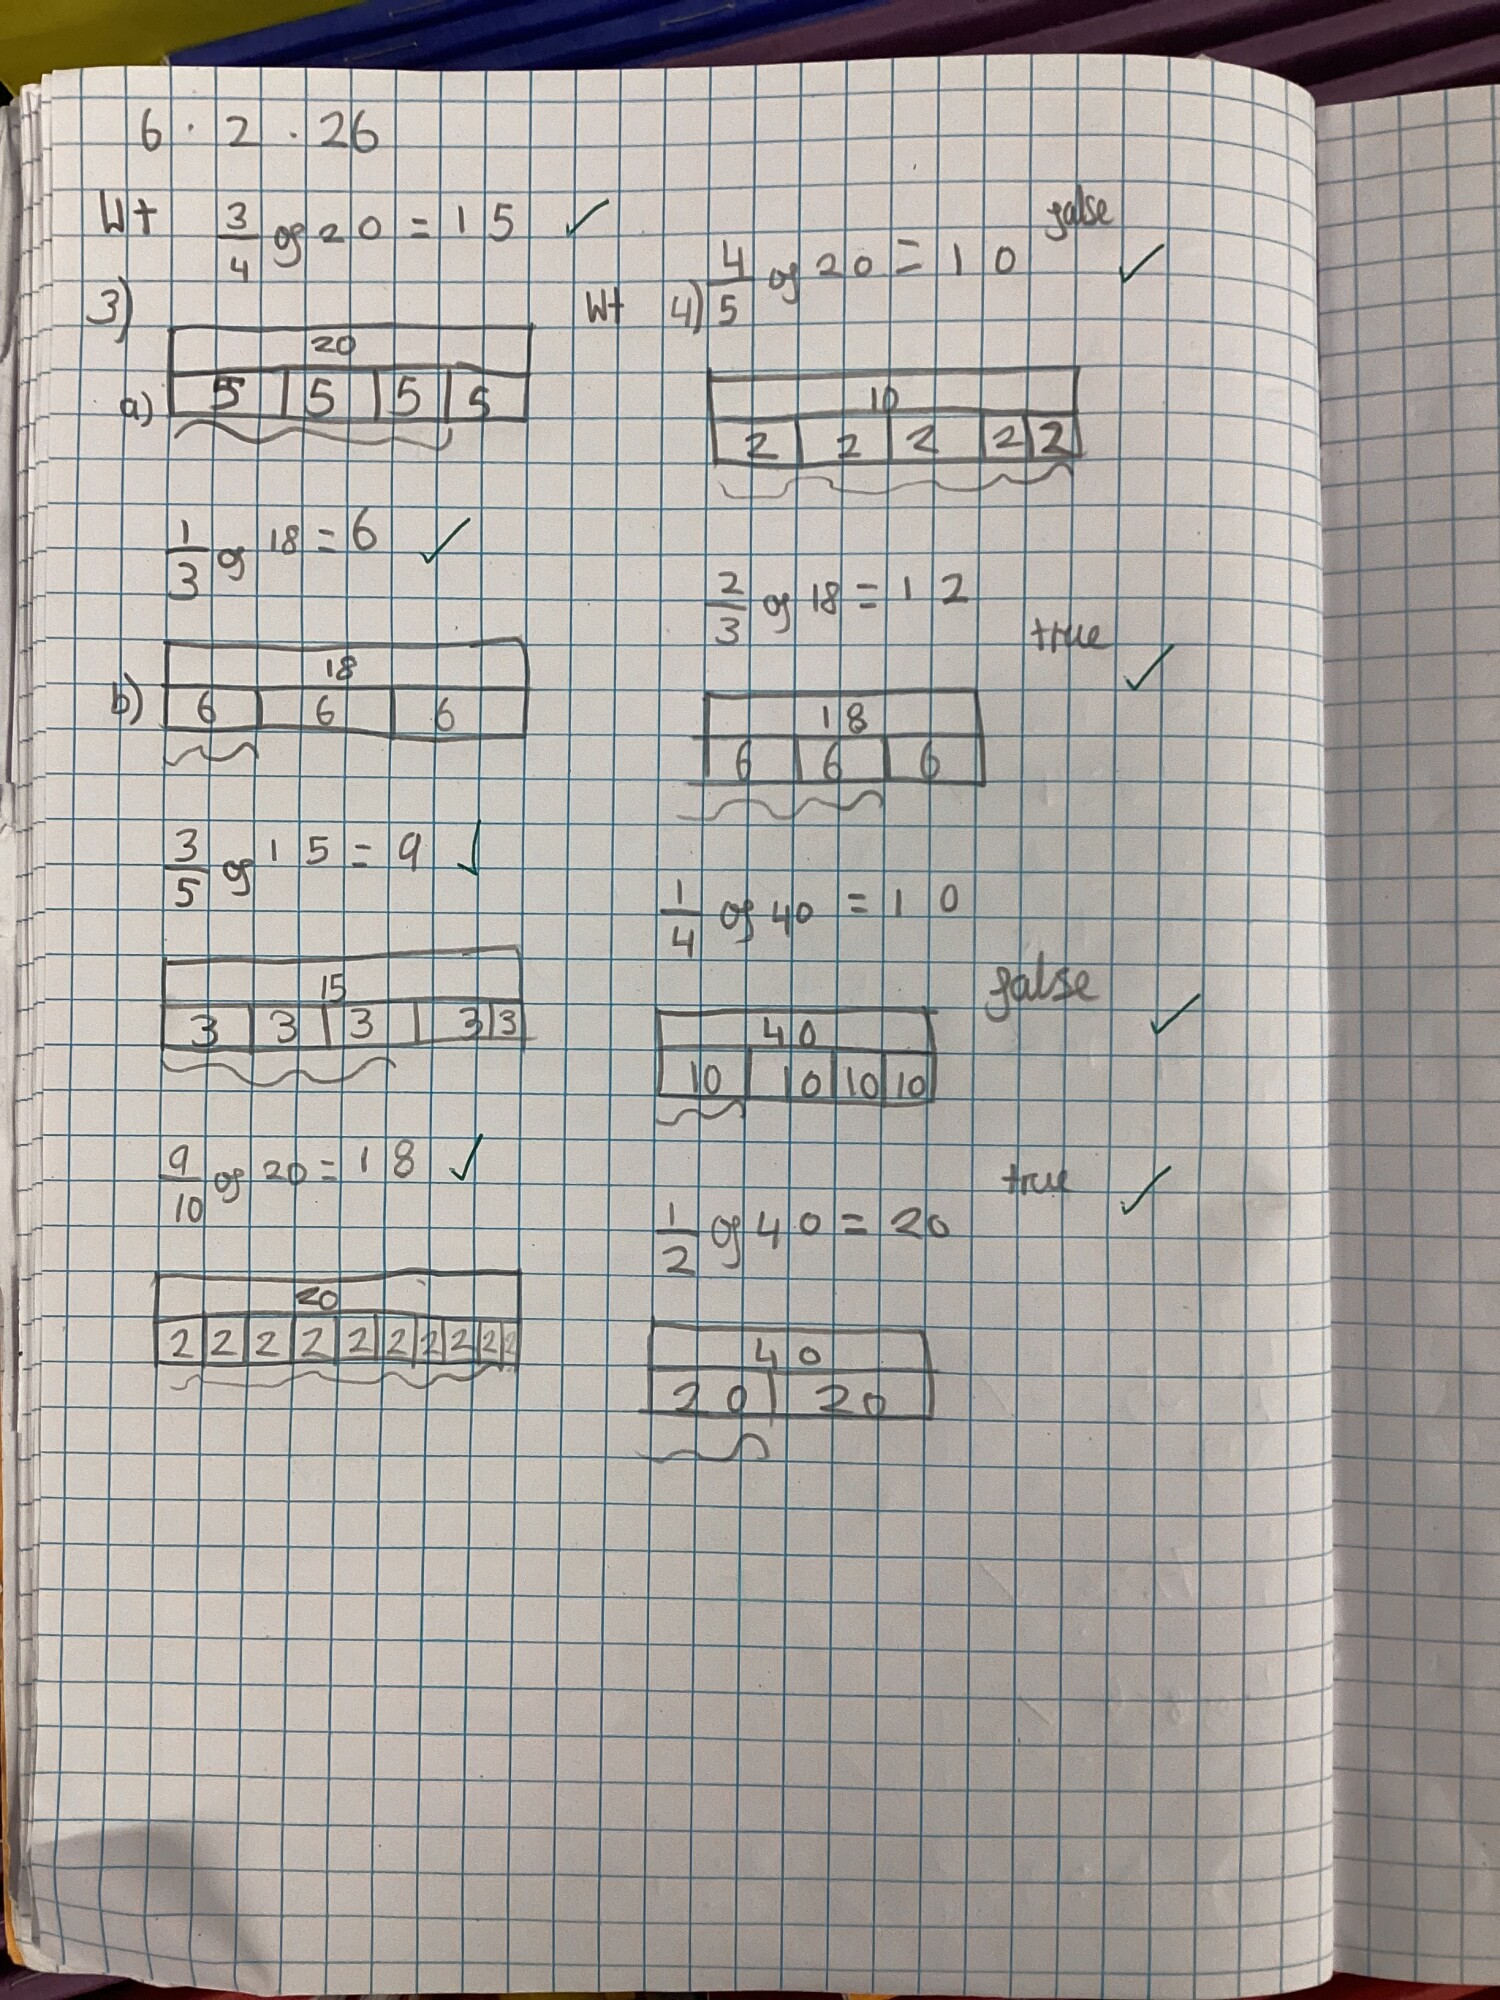 6 . 2 . 26
Wt 3/4 of 20 = 15 ✓
3)
a)
20
5 5 5 5
1/3 of 18 = 6 ✓
b)
18
6 6 6
3/5 of 15 = 9 ✓
15
3 3 3 3 3
9/10 of 20 = 18 ✓
20
2 2 2 2 2 2 2 2 2 2
Wt 4) 4/5 of 20 = 10 false ✓
10
2 2 2 2 2
2/3 of 18 = 12
true ✓
18
6 6 6
1/4 of 40 = 10
false ✓
40
10 10 10 10
true ✓
1/2 of 40 = 20
40
20 20